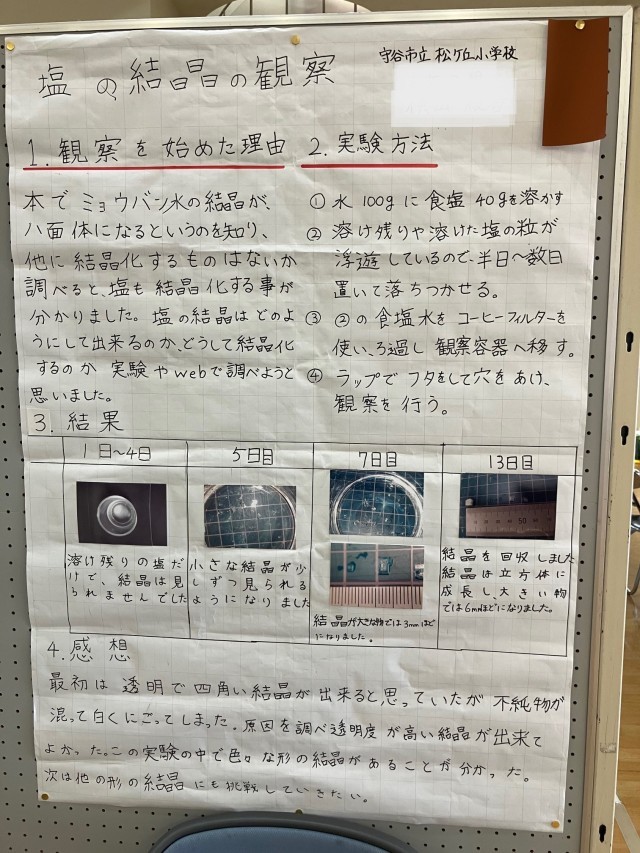 塩の結晶の観察
守谷市立松ケ丘小学校
1. 観察を始めた理由
本でミョウバン水の結晶が、
八面体になるというのを知り、
他に結晶化するものはないか
調べると、塩も結晶化する事が
分かりました。塩の結晶はどのよ
うにして出来るのか、どうして結晶化
するのか実験やwebで調べようと
思いました。
2. 実験方法
① 水 100gに食塩 40gを溶かす
② 溶け残りや溶けた塩の粒が
浮遊しているので、半日〜数日
置いて落ちつかせる。
③ ②の食塩水をコーヒーフィルターを
使い、ろ過し観察容器へ移す。
④ ラップでフタをして穴をあけ、
観察を行う。
3. 結果
1日〜4日
5日目
7日目
13日目
溶け残りの塩だ
けで、結晶は見
られませんでした
小さな結晶が少
しずつ見られる
ようになりました
結晶が大きな物では3mmほど
になりました。
結晶を回収しました
結晶は立方体に
成長し、大きい物
では6mmほどになりました。
4. 感想
最初は透明で四角い結晶が出来ると思っていたが不純物が
混って白くにごってしまった。原因を調べ透明度が高い結晶が出来て
よかった。この実験の中で色々な形の結晶があることが分かった。
次は他の形の結晶にも挑戦していきたい。